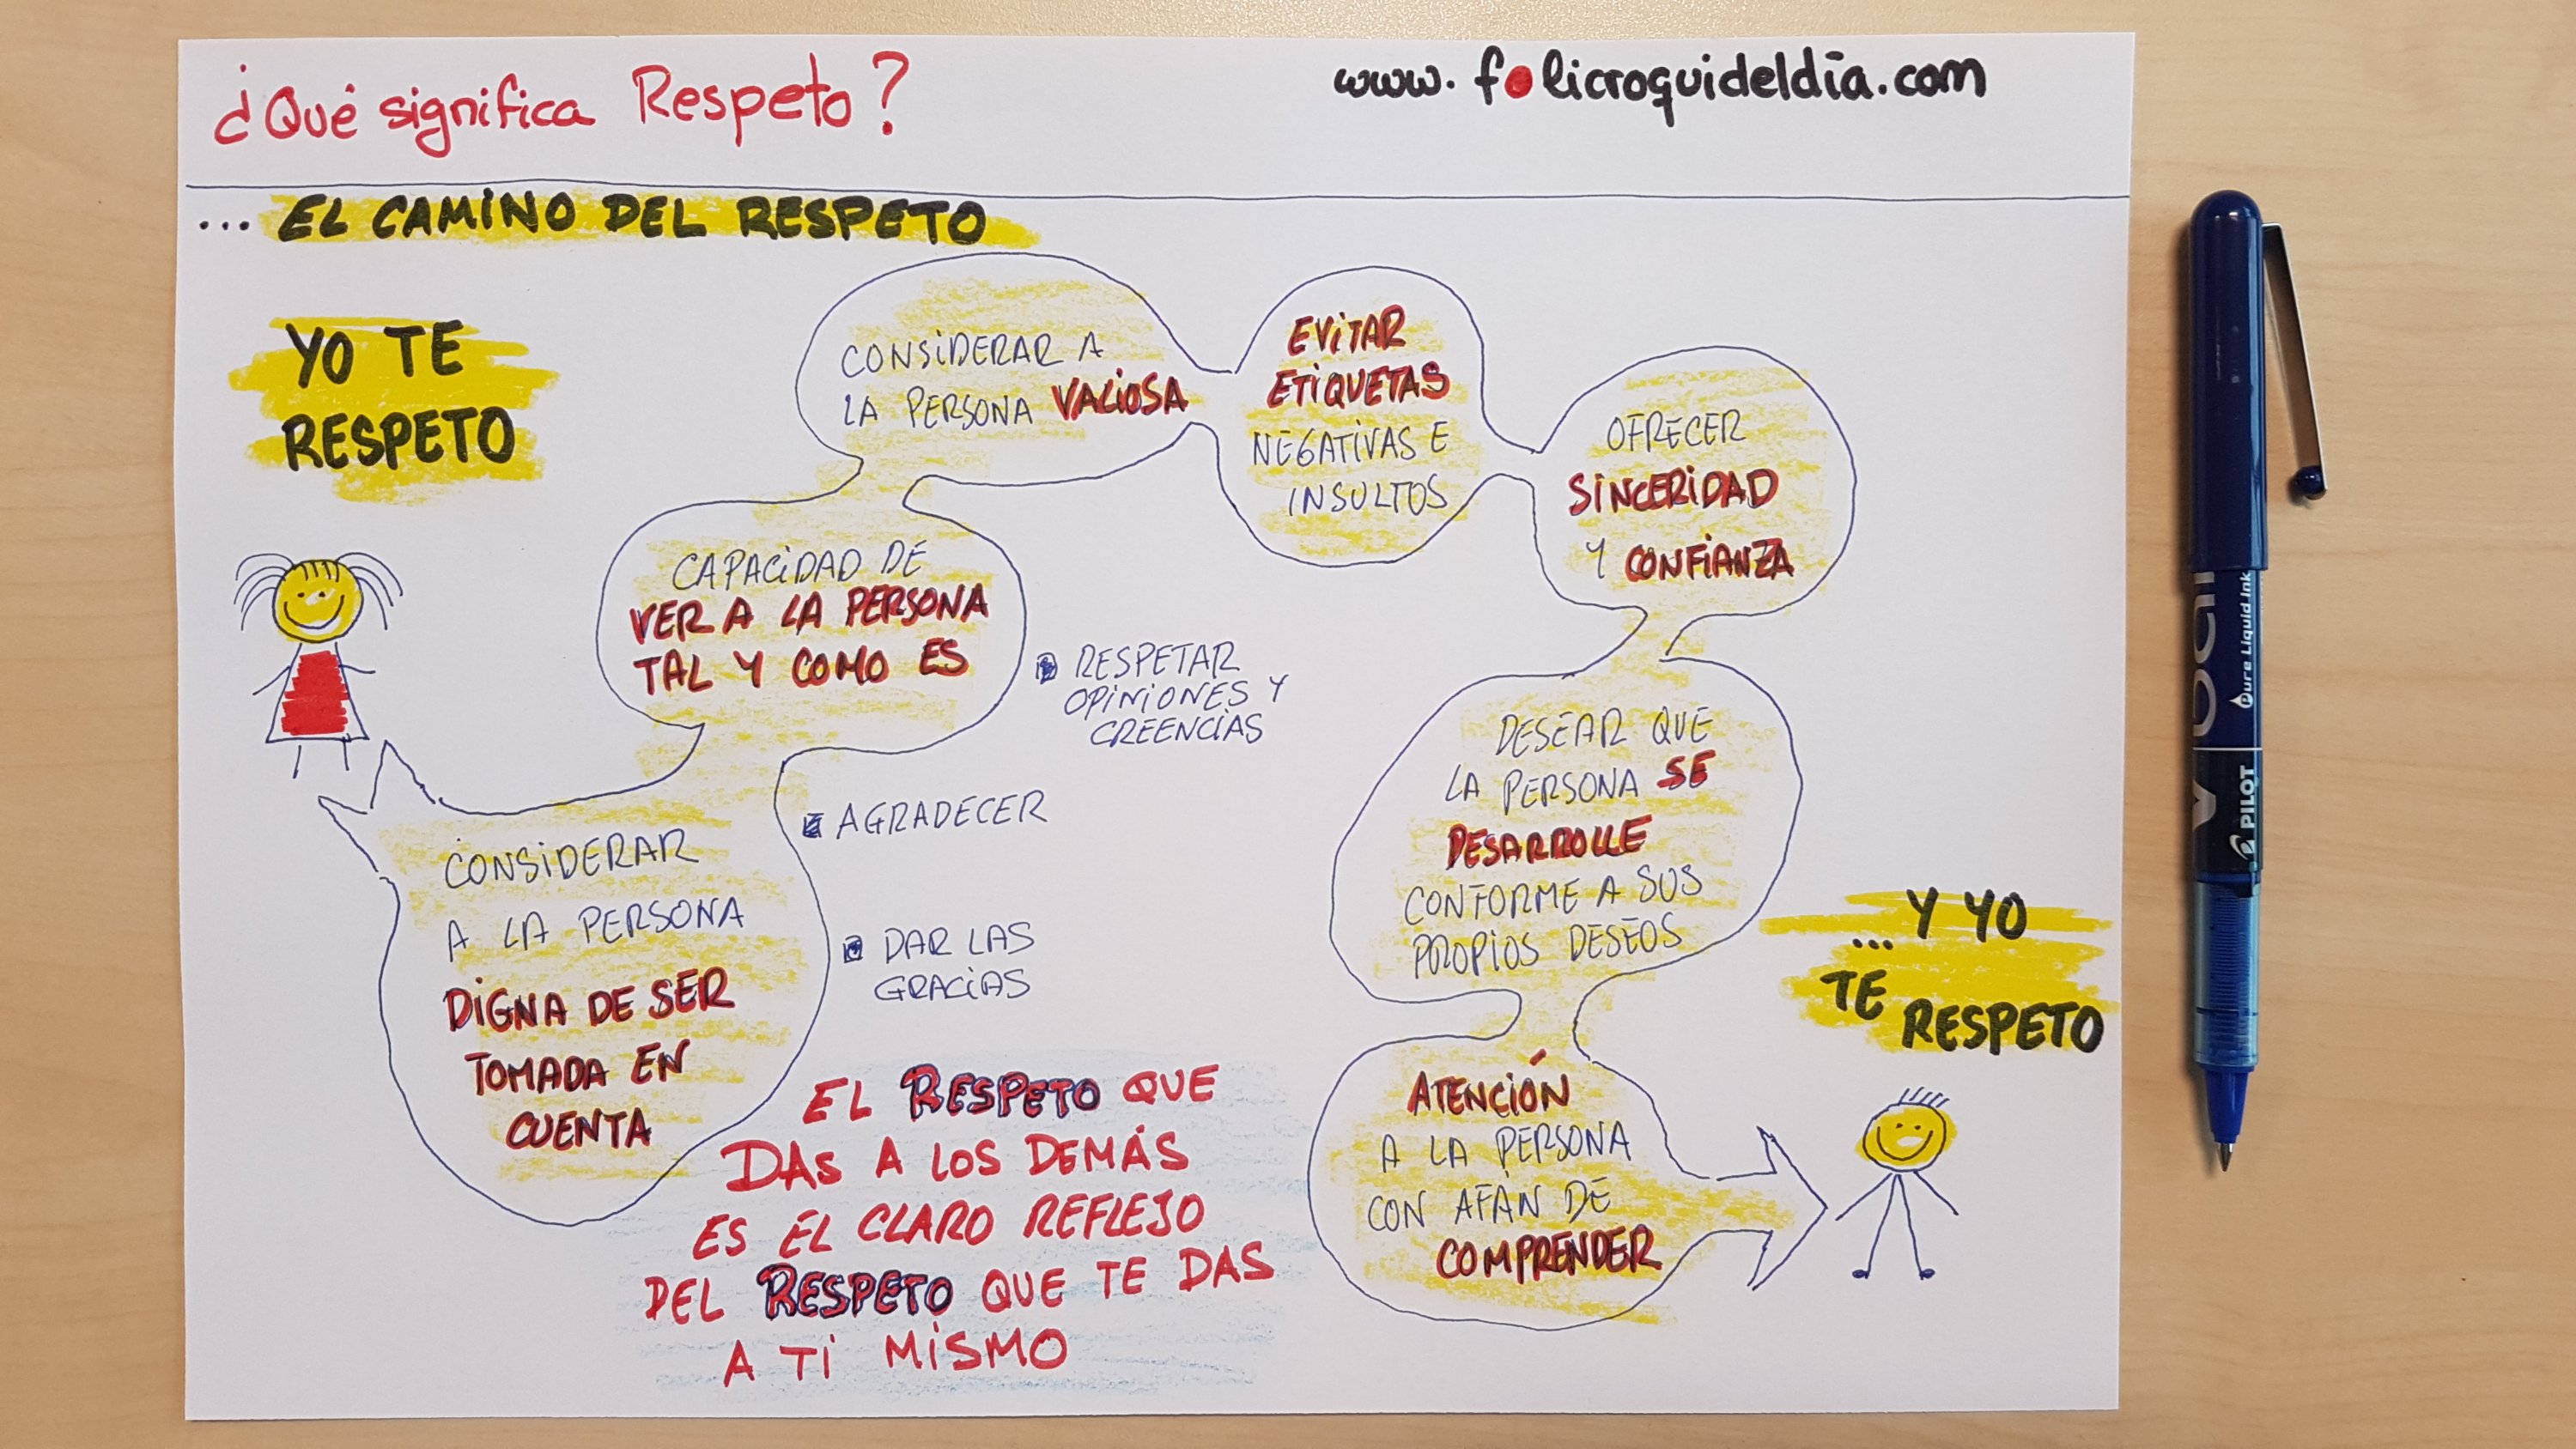 ¿Qué significa Respeto?
www.folicroquideldía.com
... EL CAMINO DEL RESPETO
YO TE
RESPETO
CONSIDERAR
A LA PERSONA
DIGNA DE SER
TOMADA EN
CUENTA
CAPACIDAD DE
VER A LA PERSONA
TAL Y COMO ES
CONSIDERAR A
LA PERSONA VALIOSA
EVITAR
ETIQUETAS
NEGATIVAS E
INSULTOS
OFRECER
SINCERIDAD
Y CONFIANZA
DESEAR QUE
LA PERSONA SE
DESARROLLE
CONFORME A SUS
PROPIOS DESEOS
ATENCIÓN
A LA PERSONA
CON AFÁN DE
COMPRENDER
... Y YO
TE RESPETO
RESPETAR
OPINIONES Y
CREENCIAS
AGRADECER
DAR LAS
GRACIAS
EL RESPETO QUE
DAS A LOS DEMÁS
ES EL CLARO REFLEJO
DEL RESPETO QUE TE DAS
A TI MISMO
Pure Liquid Ink
PILOT